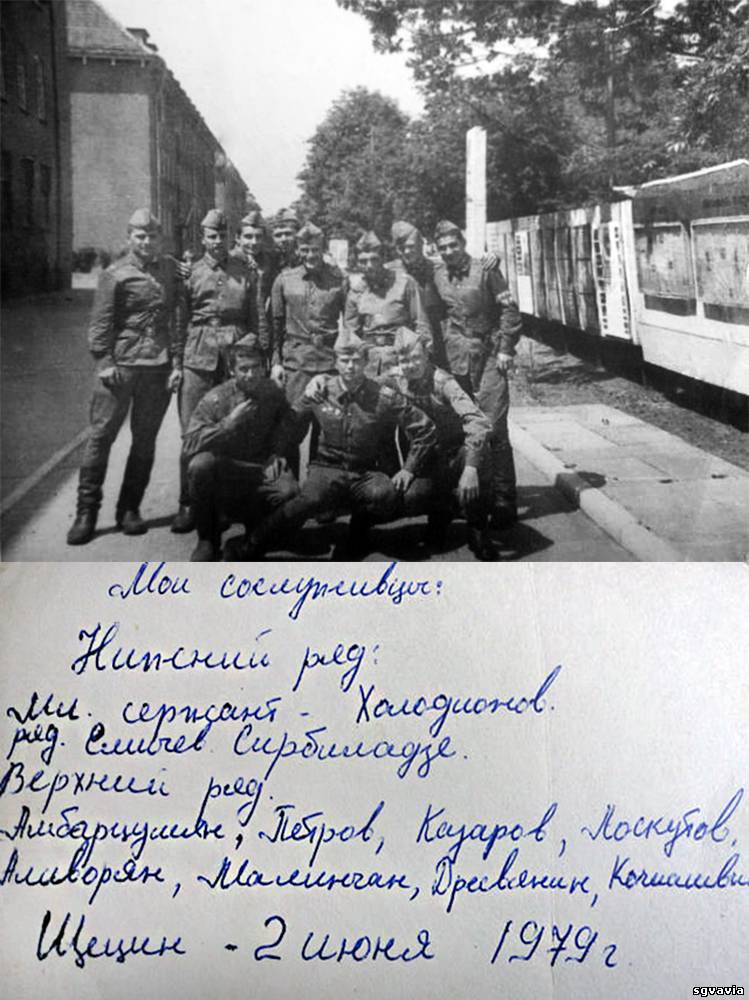 Мои сослуживцы:
Нижний ряд:
Мл. сержант - Холодионов.
ряд. Еличев. Сирбиладзе.
Верхний ряд.
Амбарцумян, Петров, Казаров, Лоскутов,
Аливорян, Малинчан, Древянин,
Щецин - 2 июня 1979 г.
sgvavia